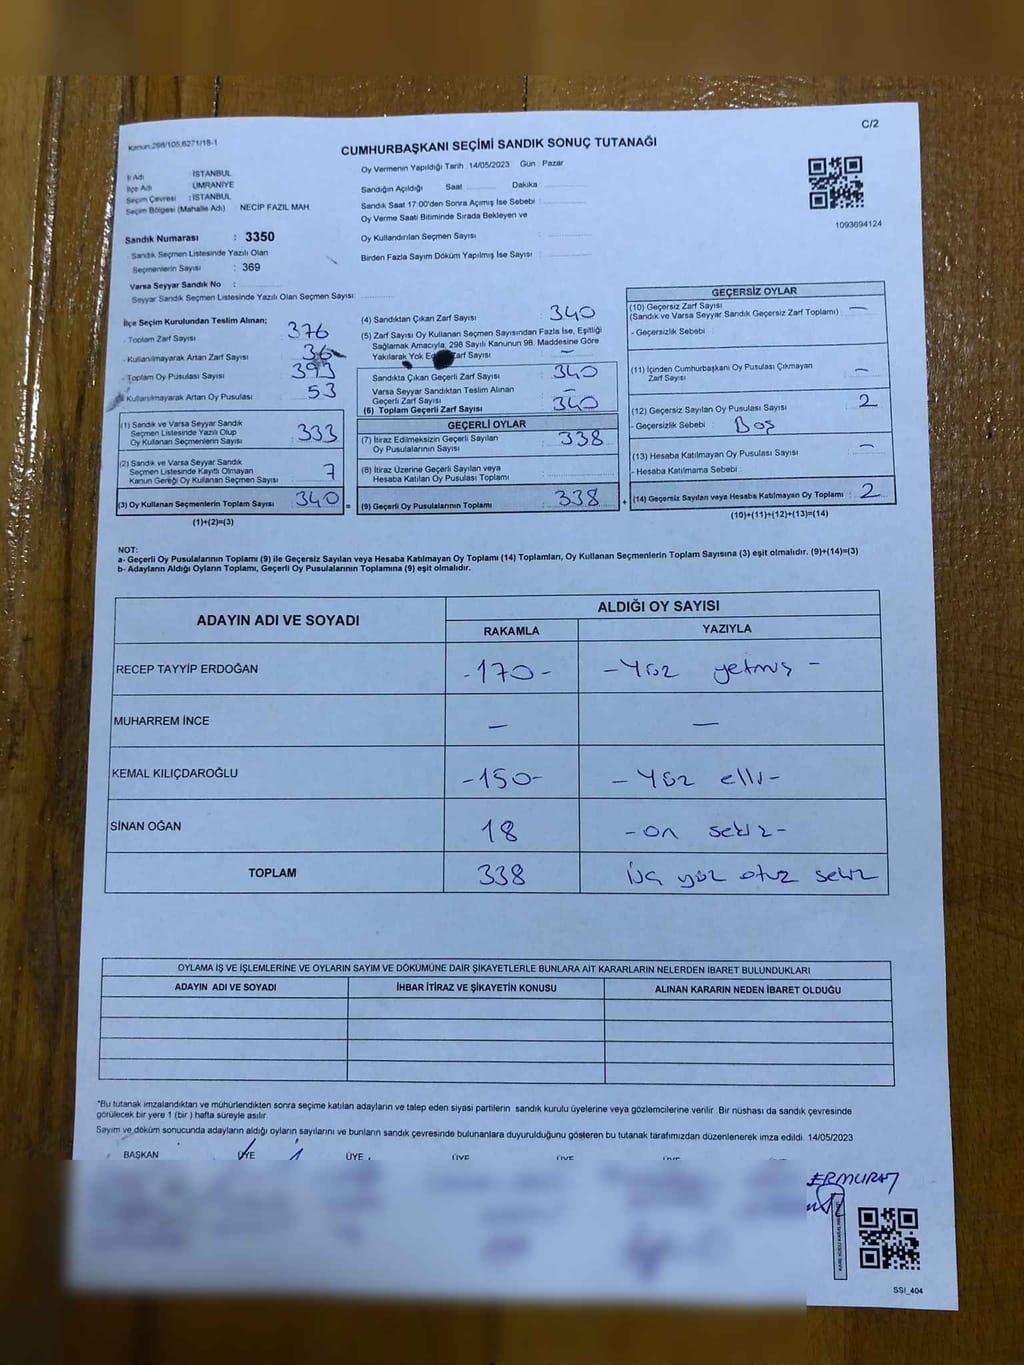 C/2
Kanun:298/105,6271/18-1
CUMHURBAŞKANI SEÇİMİ SANDIK SONUÇ TUTANAĞI
İl Adı : İSTANBUL
İlçe Adı : ÜMRANİYE
Seçim Çevresi : İSTANBUL
Seçim Bölgesi (Mahalle Adı) NECİP FAZIL MAH
Oy Vermenin Yapıldığı Tarih : 14/05/2023 Gün : Pazar
Sandığın Açıldığı Saat Dakika
Sandık Saat 17:00'den Sonra Açımış İse Sebebi :
Oy Verme Saati Bitiminde Sırada Bekleyen ve
Oy Kullandırılan Seçmen Sayısı :
Birden Fazla Sayım Döküm Yapılmış İse Sayısı :
1093694124
Sandık Numarası : 3350
Sandık Seçmen Listesinde Yazılı Olan
Seçmenlerin Sayısı : 369
Varsa Seyyar Sandık No :
Seyyar Sandık Seçmen Listesinde Yazılı Olan Seçmen Sayısı:
İlçe Seçim Kurulundan Teslim Alınan;
- Toplam Zarf Sayısı : 376
- Kullanılmayarak Artan Zarf Sayısı : 36
- Toplam Oy Pusulası Sayısı : 393
- Kullanılmayarak Artan Oy Pusulası : 53
(1) Sandık ve Varsa Seyyar Sandık
Seçmen Listesinde Yazılı Olup
Oy Kullanan Seçmenlerin Sayısı : 333
(2) Sandık ve Varsa Seyyar Sandık
Seçmen Listesinde Kayıtlı Olmayan
Kanun Gereği Oy Kullanan Seçmen Sayısı : 7
(3) Oy Kullanan Seçmenlerin Toplam Sayısı : 340 =
(1)+(2)=(3)
(4) Sandıktan Çıkan Zarf Sayısı : 340
(5) Zarf Sayısı Oy Kullanan Seçmen Sayısından Fazla İse, Eşitliği
Sağlamak Amacıyla; 298 Sayılı Kanunun 98. Maddesine Göre
Yakılarak Yok Zarf Sayısı : —
Sandıkta Çıkan Geçerli Zarf Sayısı : 340
Varsa Seyyar Sandıktan Teslim Alınan
Geçerli Zarf Sayısı : —
(6) Toplam Geçerli Zarf Sayısı : 340
GEÇERLİ OYLAR
(7) İtiraz Edilmeksizin Geçerli Sayılan
Oy Pusulalarının Sayısı : 338
(8) İtiraz Üzerine Geçerli Sayılan veya
Hesaba Katılan Oy Pusulası Toplamı :
(9) Geçerli Oy Pusulalarının Toplamı : 338 +
GEÇERSİZ OYLAR
(10) Geçersiz Zarf Sayısı
(Sandık ve Varsa Seyyar Sandık Geçersiz Zarf Toplamı) : —
- Geçersizlik Sebebi :
(11) İçinden Cumhurbaşkanı Oy Pusulası Çıkmayan
Zarf Sayısı : —
(12) Geçersiz Sayılan Oy Pusulası Sayısı : 2
- Geçersizlik Sebebi : Boş
(13) Hesaba Katılmayan Oy Pusulası Sayısı : —
- Hesaba Katılmama Sebebi :
(14) Geçersiz Sayılan veya Hesaba Katılmayan Oy Toplamı : 2
(10)+(11)+(12)+(13)=(14)
NOT:
a- Geçerli Oy Pusulalarının Toplamı (9) ile Geçersiz Sayılan veya Hesaba Katılmayan Oy Toplamı (14) Toplamları, Oy Kullanan Seçmenlerin Toplam Sayısına (3) eşit olmalıdır. (9)+(14)=(3)
b- Adayların Aldığı Oyların Toplamı, Geçerli Oy Pusulalarının Toplamına (9) eşit olmalıdır.
ADAYIN ADI VE SOYADI ALDIĞI OY SAYISI
RAKAMLA YAZIYLA
RECEP TAYYİP ERDOĞAN -170- - Yüz yetmiş -
MUHARREM İNCE — —
KEMAL KILIÇDAROĞLU -150- - Yüz elli -
SİNAN OĞAN 18 - on sekiz -
TOPLAM 338 üç yüz otuz sekiz
OYLAMA İŞ VE İŞLEMLERİNE VE OYLARIN SAYIM VE DÖKÜMÜNE DAİR ŞİKAYETLERLE BUNLARA AİT KARARLARIN NELERDEN İBARET BULUNDUKLARI
ADAYIN ADI VE SOYADI İHBAR İTİRAZ VE ŞİKAYETİN KONUSU ALINAN KARARIN NEDEN İBARET OLDUĞU
*Bu tutanak imzalandıktan ve mühürlendikten sonra seçime katılan adayların ve talep eden siyasi partilerin sandık kurulu üyelerine veya gözlemcilerine verilir. Bir nüshası da sandık çevresinde
görülecek bir yere 1 (bir) hafta süreyle asılır.
Sayım ve döküm sonucunda adayların aldığı oyların sayılarını ve bunların sandık çevresinde bulunanlara duyurulduğunu gösteren bu tutanak tarafımızdan düzenlenerek imza edildi. 14/05/2023
BAŞKAN ÜYE ÜYE ÜYE ÜYE ÜYE
SSI_404